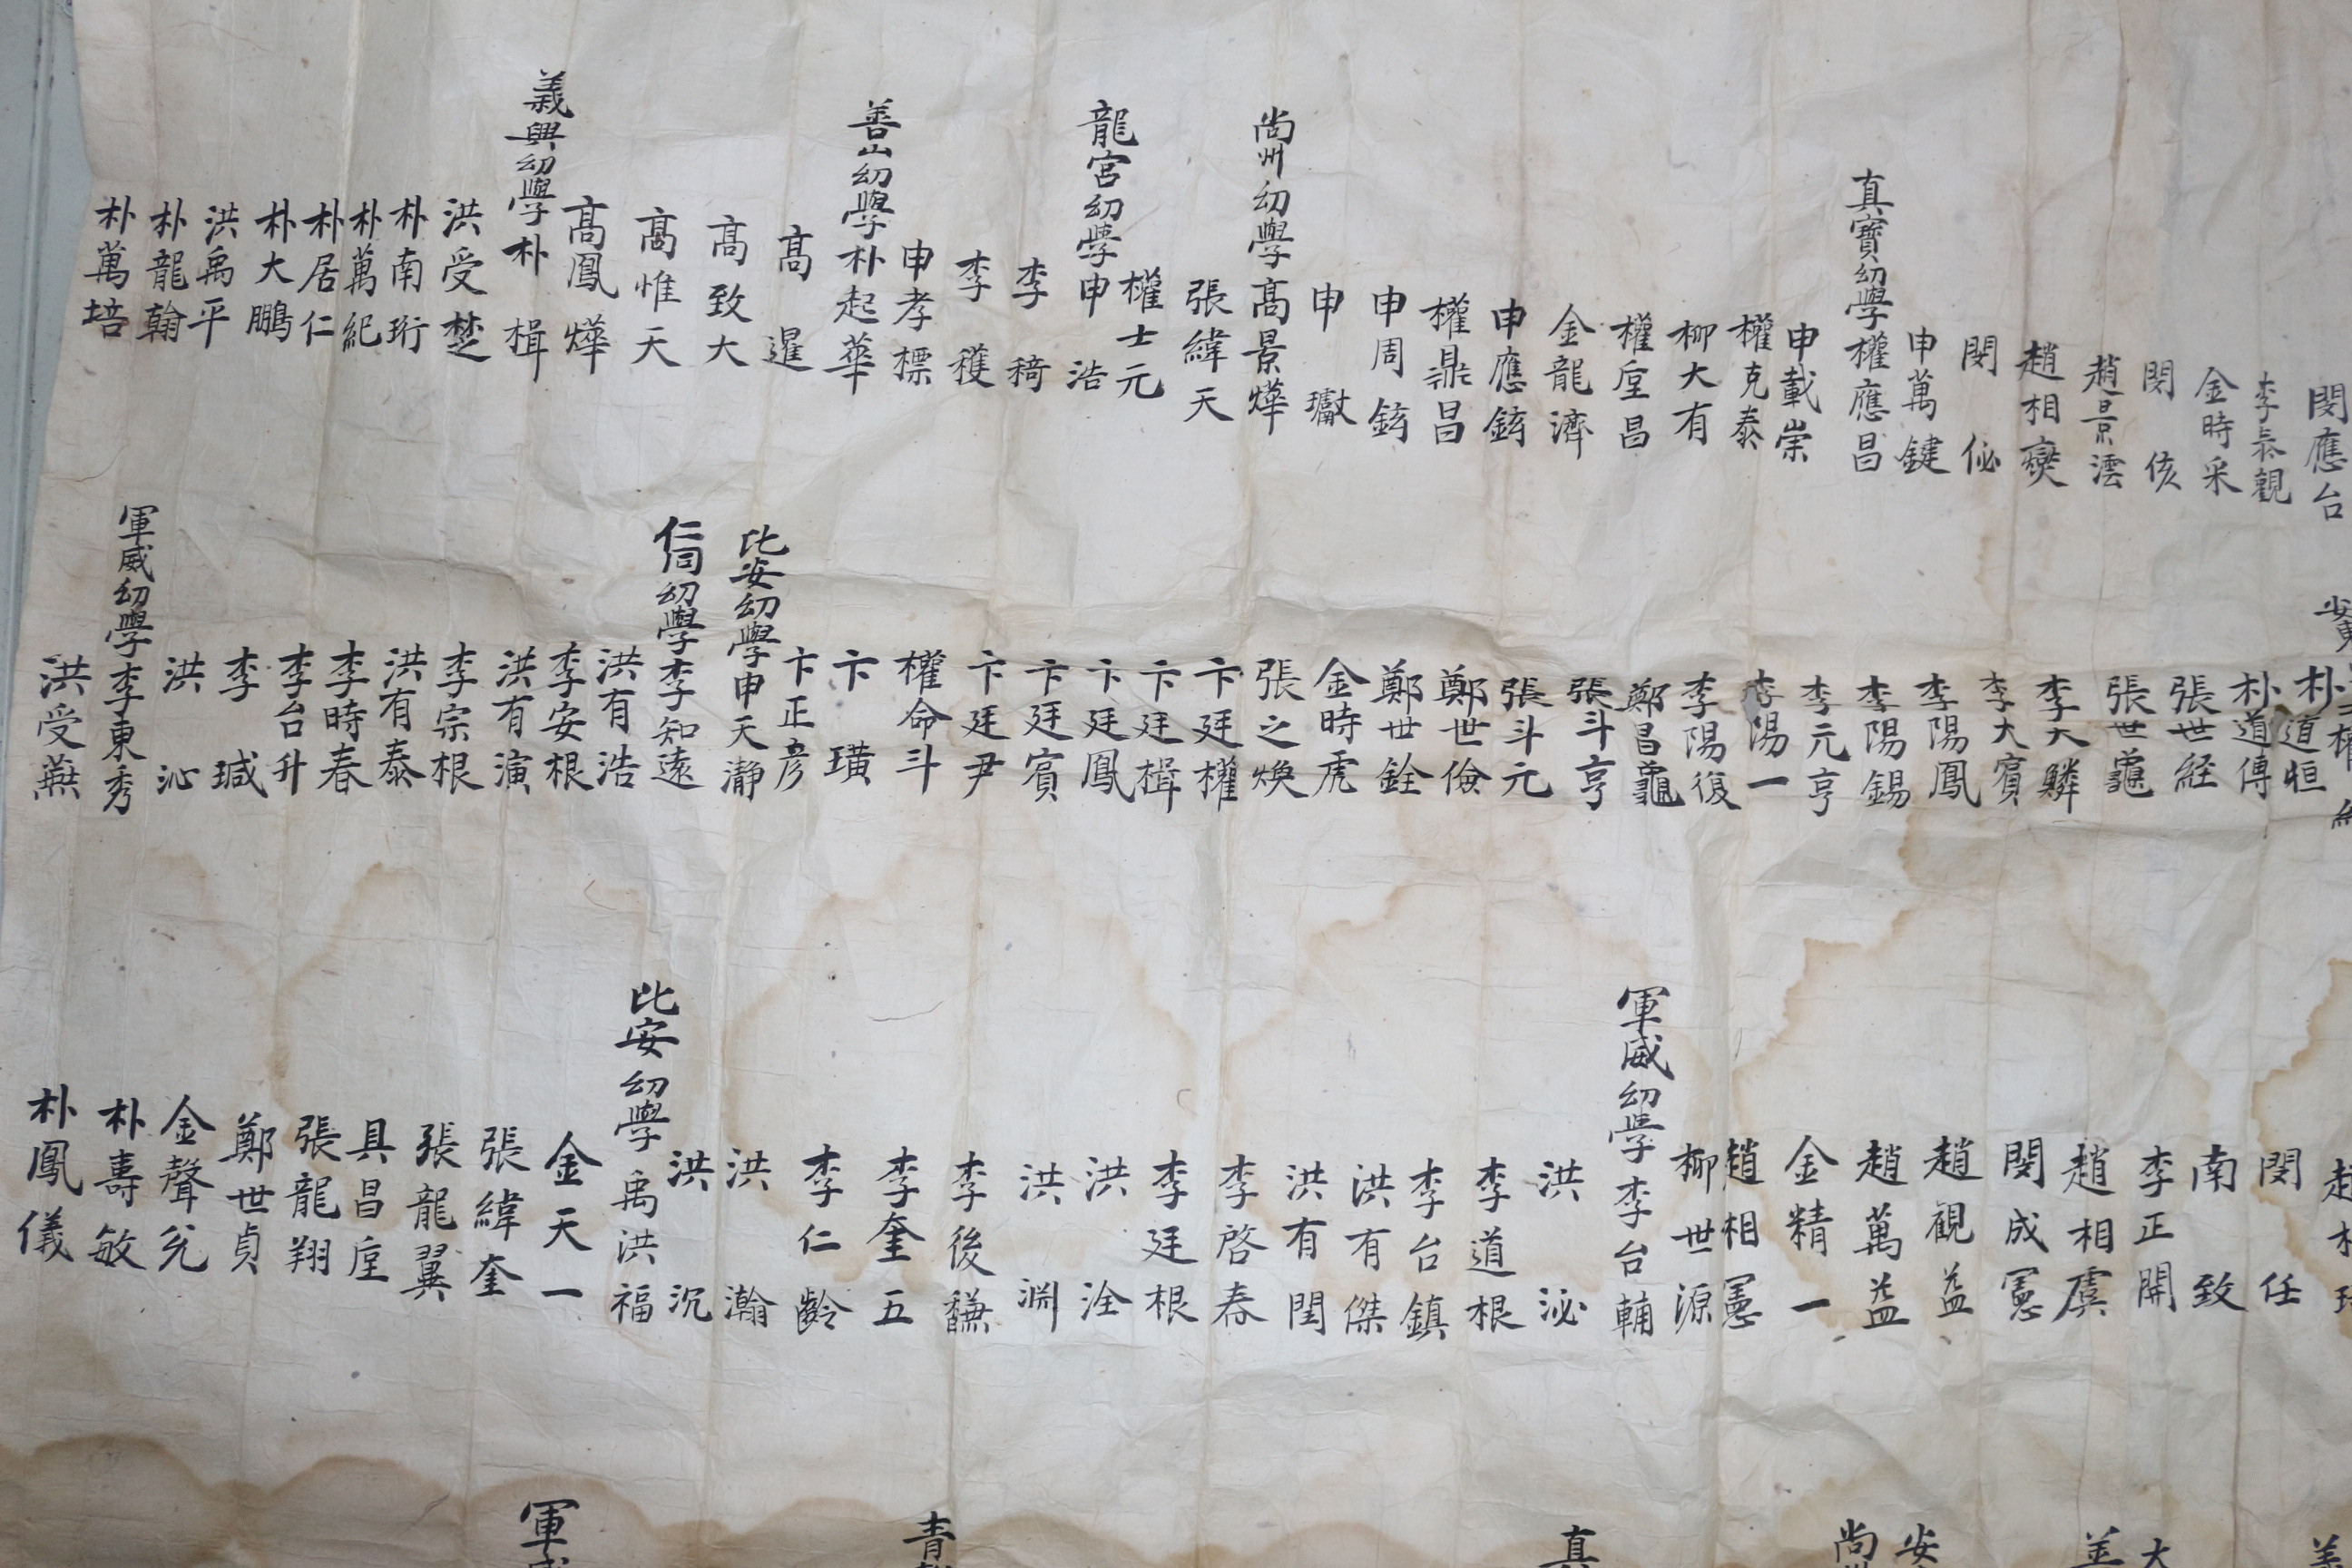 閔應台
李泰觀
金時采
閔㤥
趙景澐
趙相奭
閔佖
申萬鍵
真寶幼學權應昌
申載崇
權克泰
柳大有
權垕昌
金龍濟
申應鉉
權鼎昌
申周鉉
申瓛
尚州幼學高景燁
張緯天
權士元
龍宮幼學申浩
李䅲
李穫
申孝標
善山幼學朴起華
高暹
高致大
高惟天
高鳳燁
義興幼學朴楫
洪受楚
朴南珩
朴萬紀
朴居仁
朴大鵬
洪禹平
朴龍翰
朴萬培
安東
朴道恒
朴道傳
張世経
張世龜
李大麟
李大賓
李陽鳳
李陽錫
李元亨
李陽一
李陽復
鄭昌龜
張斗亨
張斗元
鄭世儉
鄭世銓
金時虎
張之煥
卞廷權
卞廷楫
卞廷鳳
卞廷賓
卞廷尹
權命斗
卞璜
卞正彦
比安幼學申天瀞
仁同幼學李知遠
洪有浩
李安根
洪有演
李宗根
洪有泰
李時春
李台升
李瑊
洪沁
軍威幼學李東秀
洪受燕
閔任
南致
李正開
趙相虞
閔成憲
趙觀益
趙萬益
金精一
趙相憲
柳世源
軍威幼學李台輔
洪泌
李道根
李台鎮
洪有傑
洪有閏
李啓春
李廷根
洪洤
洪渊
李後馦
李奎五
李仁齡
洪瀚
洪沉
比安幼學禹洪福
金天一
張緯奎
張龍翼
具昌垕
張龍翔
鄭世貞
金聲兌
朴壽敏
朴鳳儀
大
善
安
尚
真
青
軍威